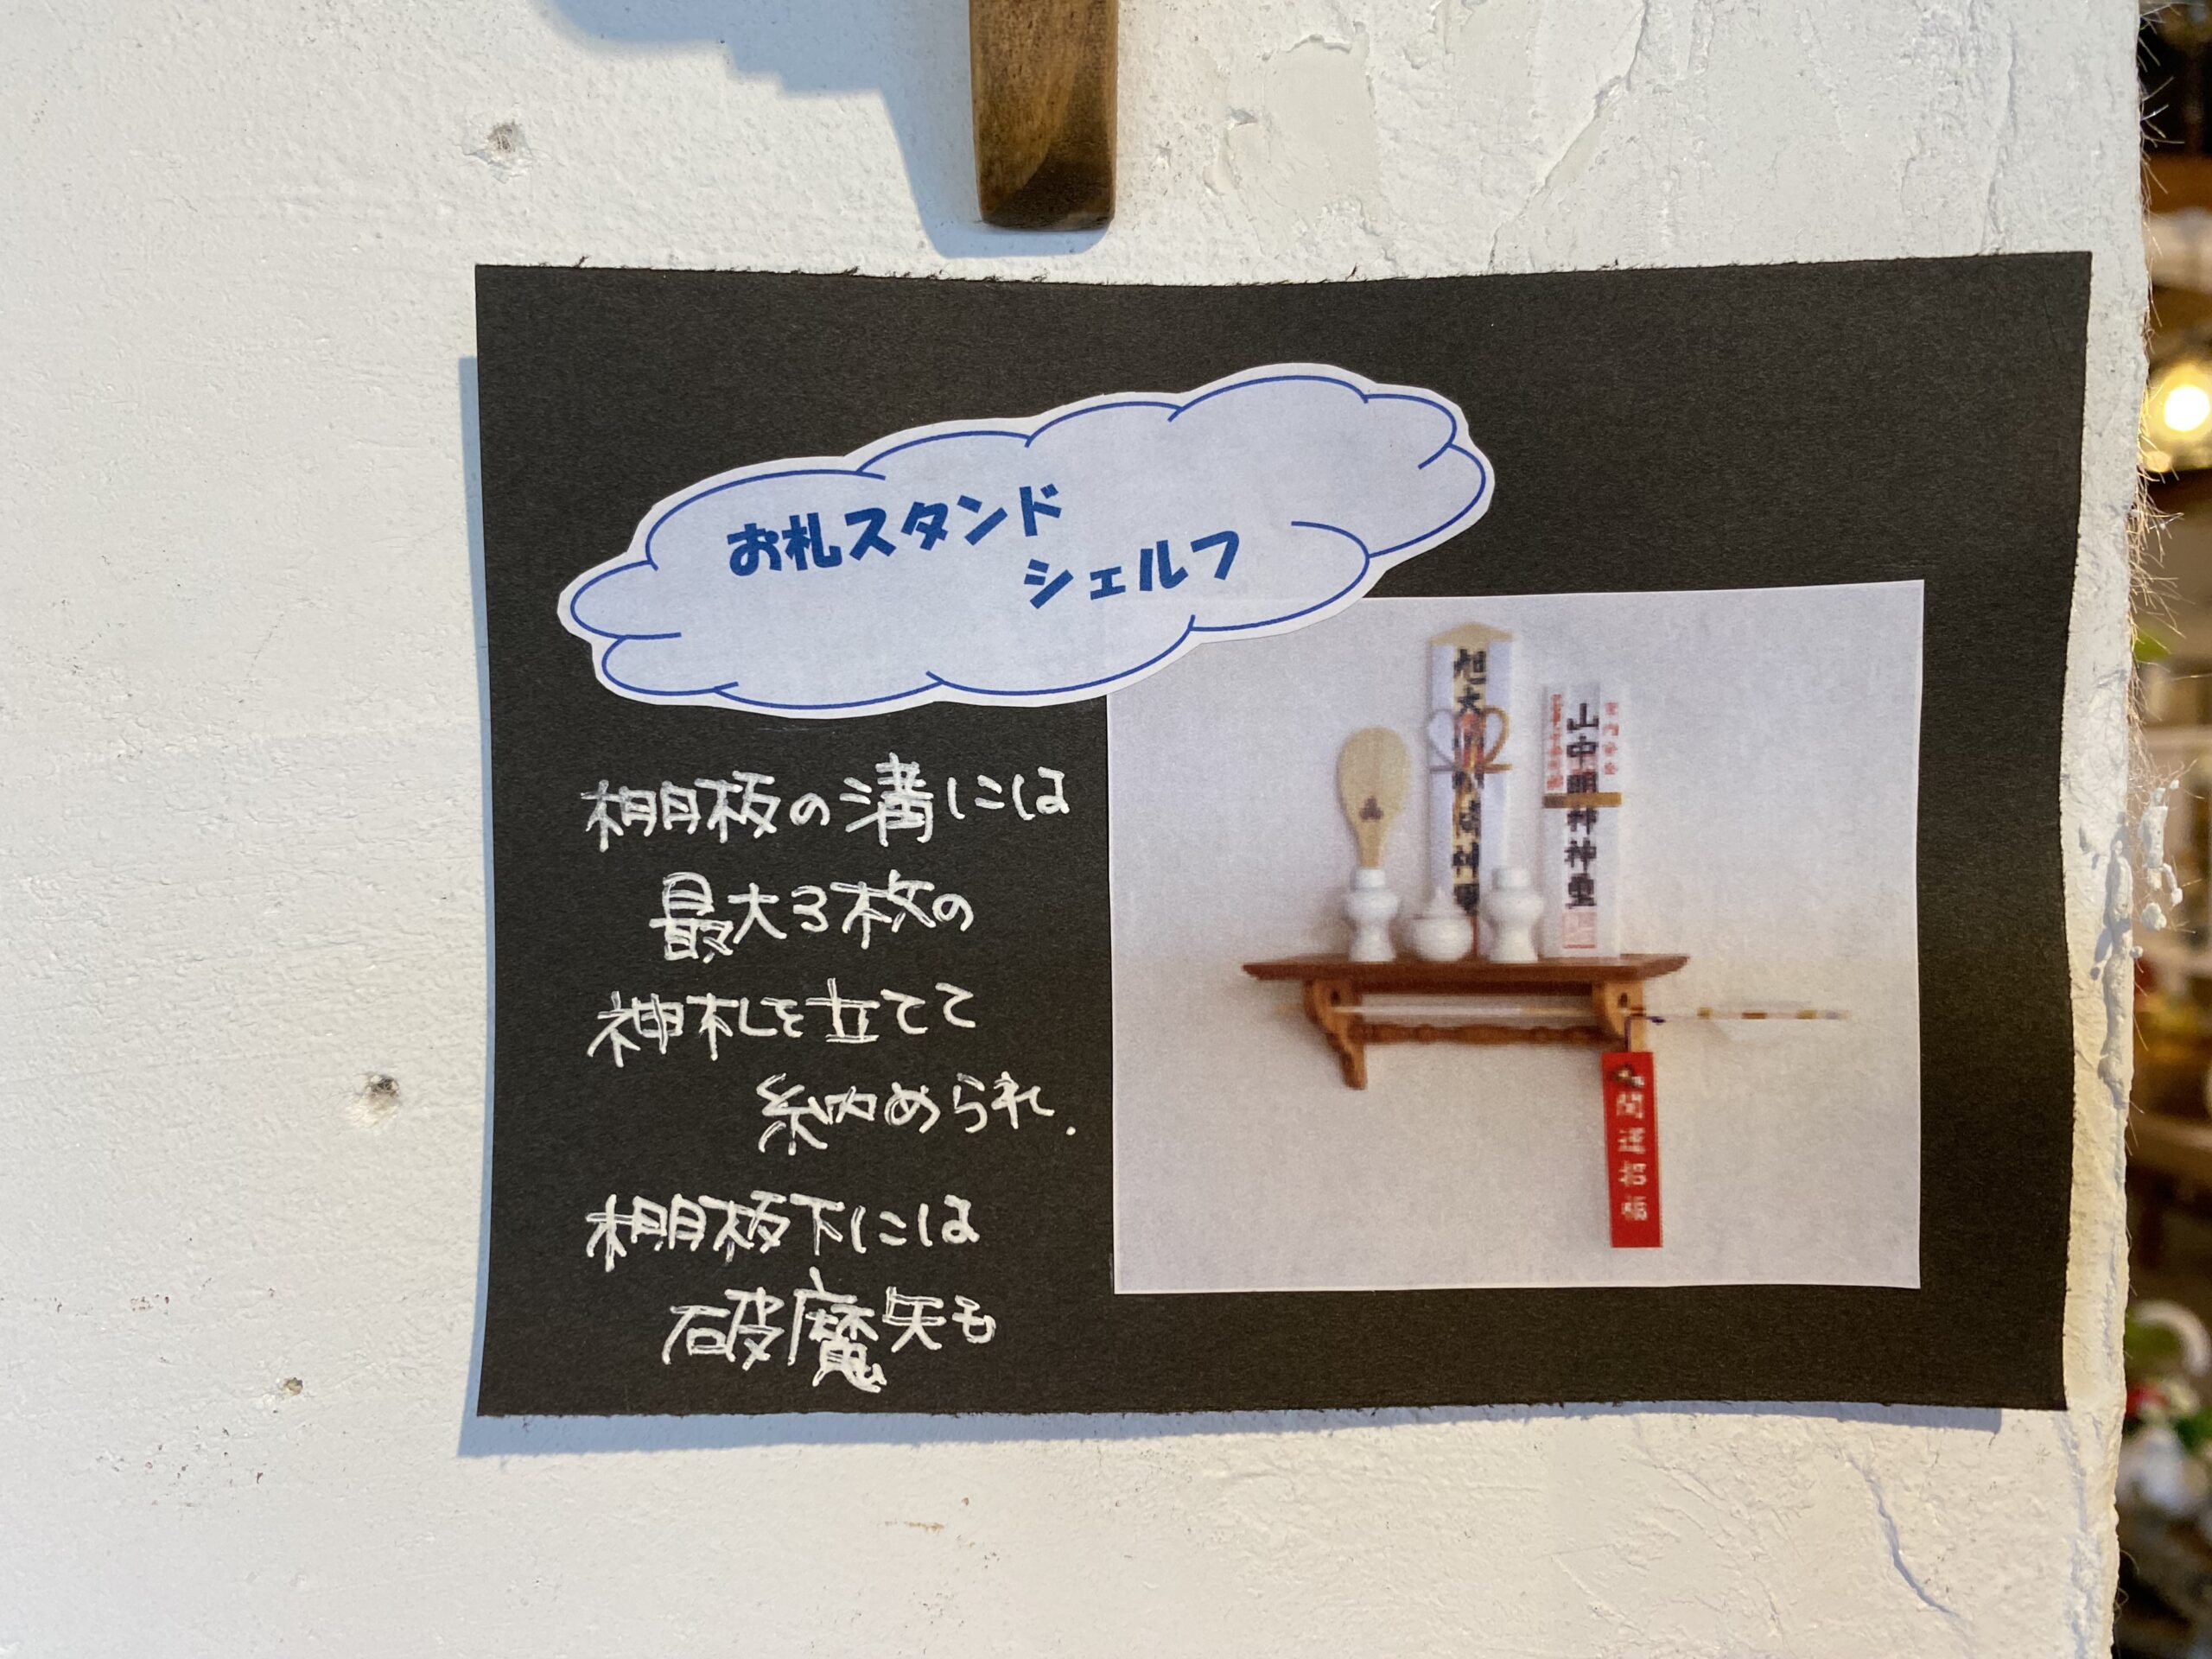 お札スタンド
シェルフ
棚板の溝には
最大3枚の
神札を立てて
納められ.
棚板下には
破魔矢も
開運招福